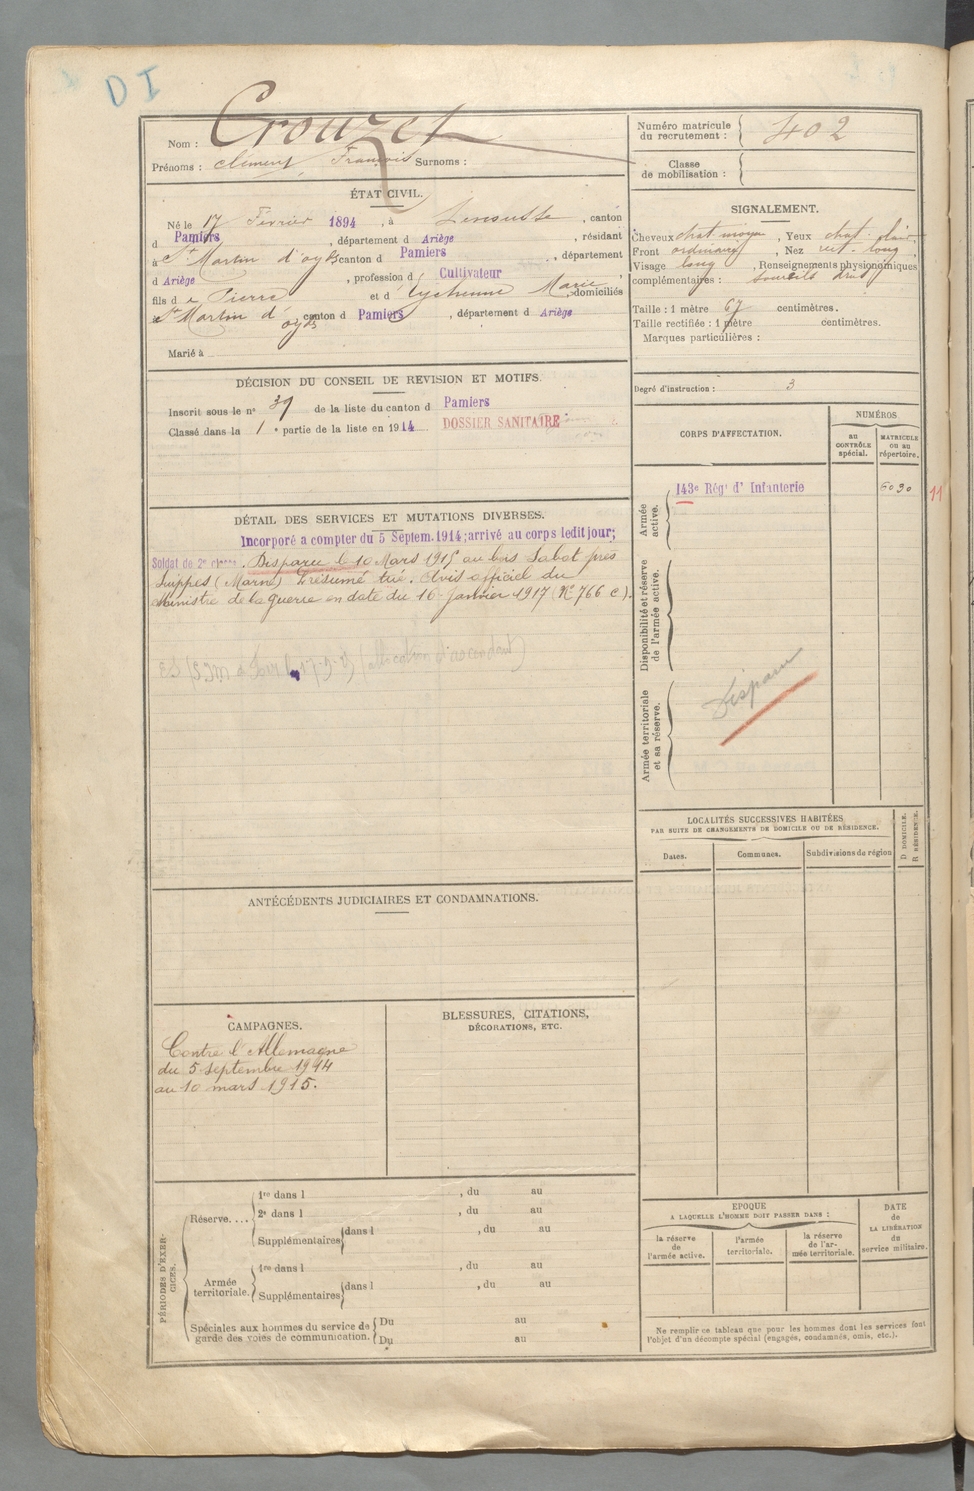 DI
Nom : Crouzet
Prénoms : Clément, François Surnoms :
Numéro matricule du recrutement : 402
Classe de mobilisation :
ÉTAT CIVIL.
Né le 17 Février 1894, à , canton
d Pamiers, département d Ariège, résidant
à St Martin d'oyds canton d Pamiers, département
d Ariège, profession d Cultivateur
fils de Pierre et d Marie, domiciliés
à St Martin d'oyds canton d Pamiers, département d Ariège
Marié à
SIGNALEMENT.
Cheveux chat moyen, Yeux chat. clair
Front ordinaire, Nez rect. long
Visage long, Renseignements physionomiques
complémentaires : sourcils drus
Taille : 1 mètre 67 centimètres.
Taille rectifiée : 1 mètre centimètres.
Marques particulières :
Degré d'instruction : 3
DÉCISION DU CONSEIL DE REVISION ET MOTIFS.
Inscrit sous le n° 39 de la liste du canton d Pamiers
Classé dans la 1e partie de la liste en 1914 DOSSIER SANITAIRE
DÉTAIL DES SERVICES ET MUTATIONS DIVERSES.
Incorporé a compter du 5 Septem. 1914; arrivé au corps ledit jour;
Soldat de 2e classe. Disparu le 10 Mars 1915 au bois Sabot près
Suippes (Marne) Présumé tué. Avis officiel du
Ministre de la guerre en date du 16 janvier 1917 (N° 766 C).
(allocation d'ascendant)
CORPS D'AFFECTATION.
NUMÉROS
au CONTRÔLE spécial.
MATRICULE ou au répertoire.
Armée active.
143e Régt d'Infanterie
6030
11
Disponibilité et réserve de l'armée active.
Armée territoriale et sa réserve.
Disparu
LOCALITÉS SUCCESSIVES HABITÉES
PAR SUITE DE CHANGEMENTS DE DOMICILE OU DE RÉSIDENCE.
Dates.
Communes.
Subdivisions de région
D DOMICILE.
R RÉSIDENCE.
ANTÉCÉDENTS JUDICIAIRES ET CONDAMNATIONS.
CAMPAGNES.
Contre l'Allemagne
du 5 septembre 1914
au 10 mars 1915.
BLESSURES, CITATIONS,
DÉCORATIONS, ETC.
PÉRIODES D'EXERCICES.
Réserve....
1re dans l , du au
2e dans l , du au
Supplémentaires dans l , du au
Armée territoriale.
1re dans l , du au
Supplémentaires dans l , du au
Spéciales aux hommes du service de garde des voies de communication.
Du au
Du au
EPOQUE
A LAQUELLE L'HOMME DOIT PASSER DANS :
la réserve de l'armée active.
l'armée territoriale.
la réserve de l'armée territoriale.
DATE de LA LIBÉRATION du service militaire.
Ne remplir ce tableau que pour les hommes dont les services font
l'objet d'un décompte spécial (engagés, condamnés, omis, etc.).